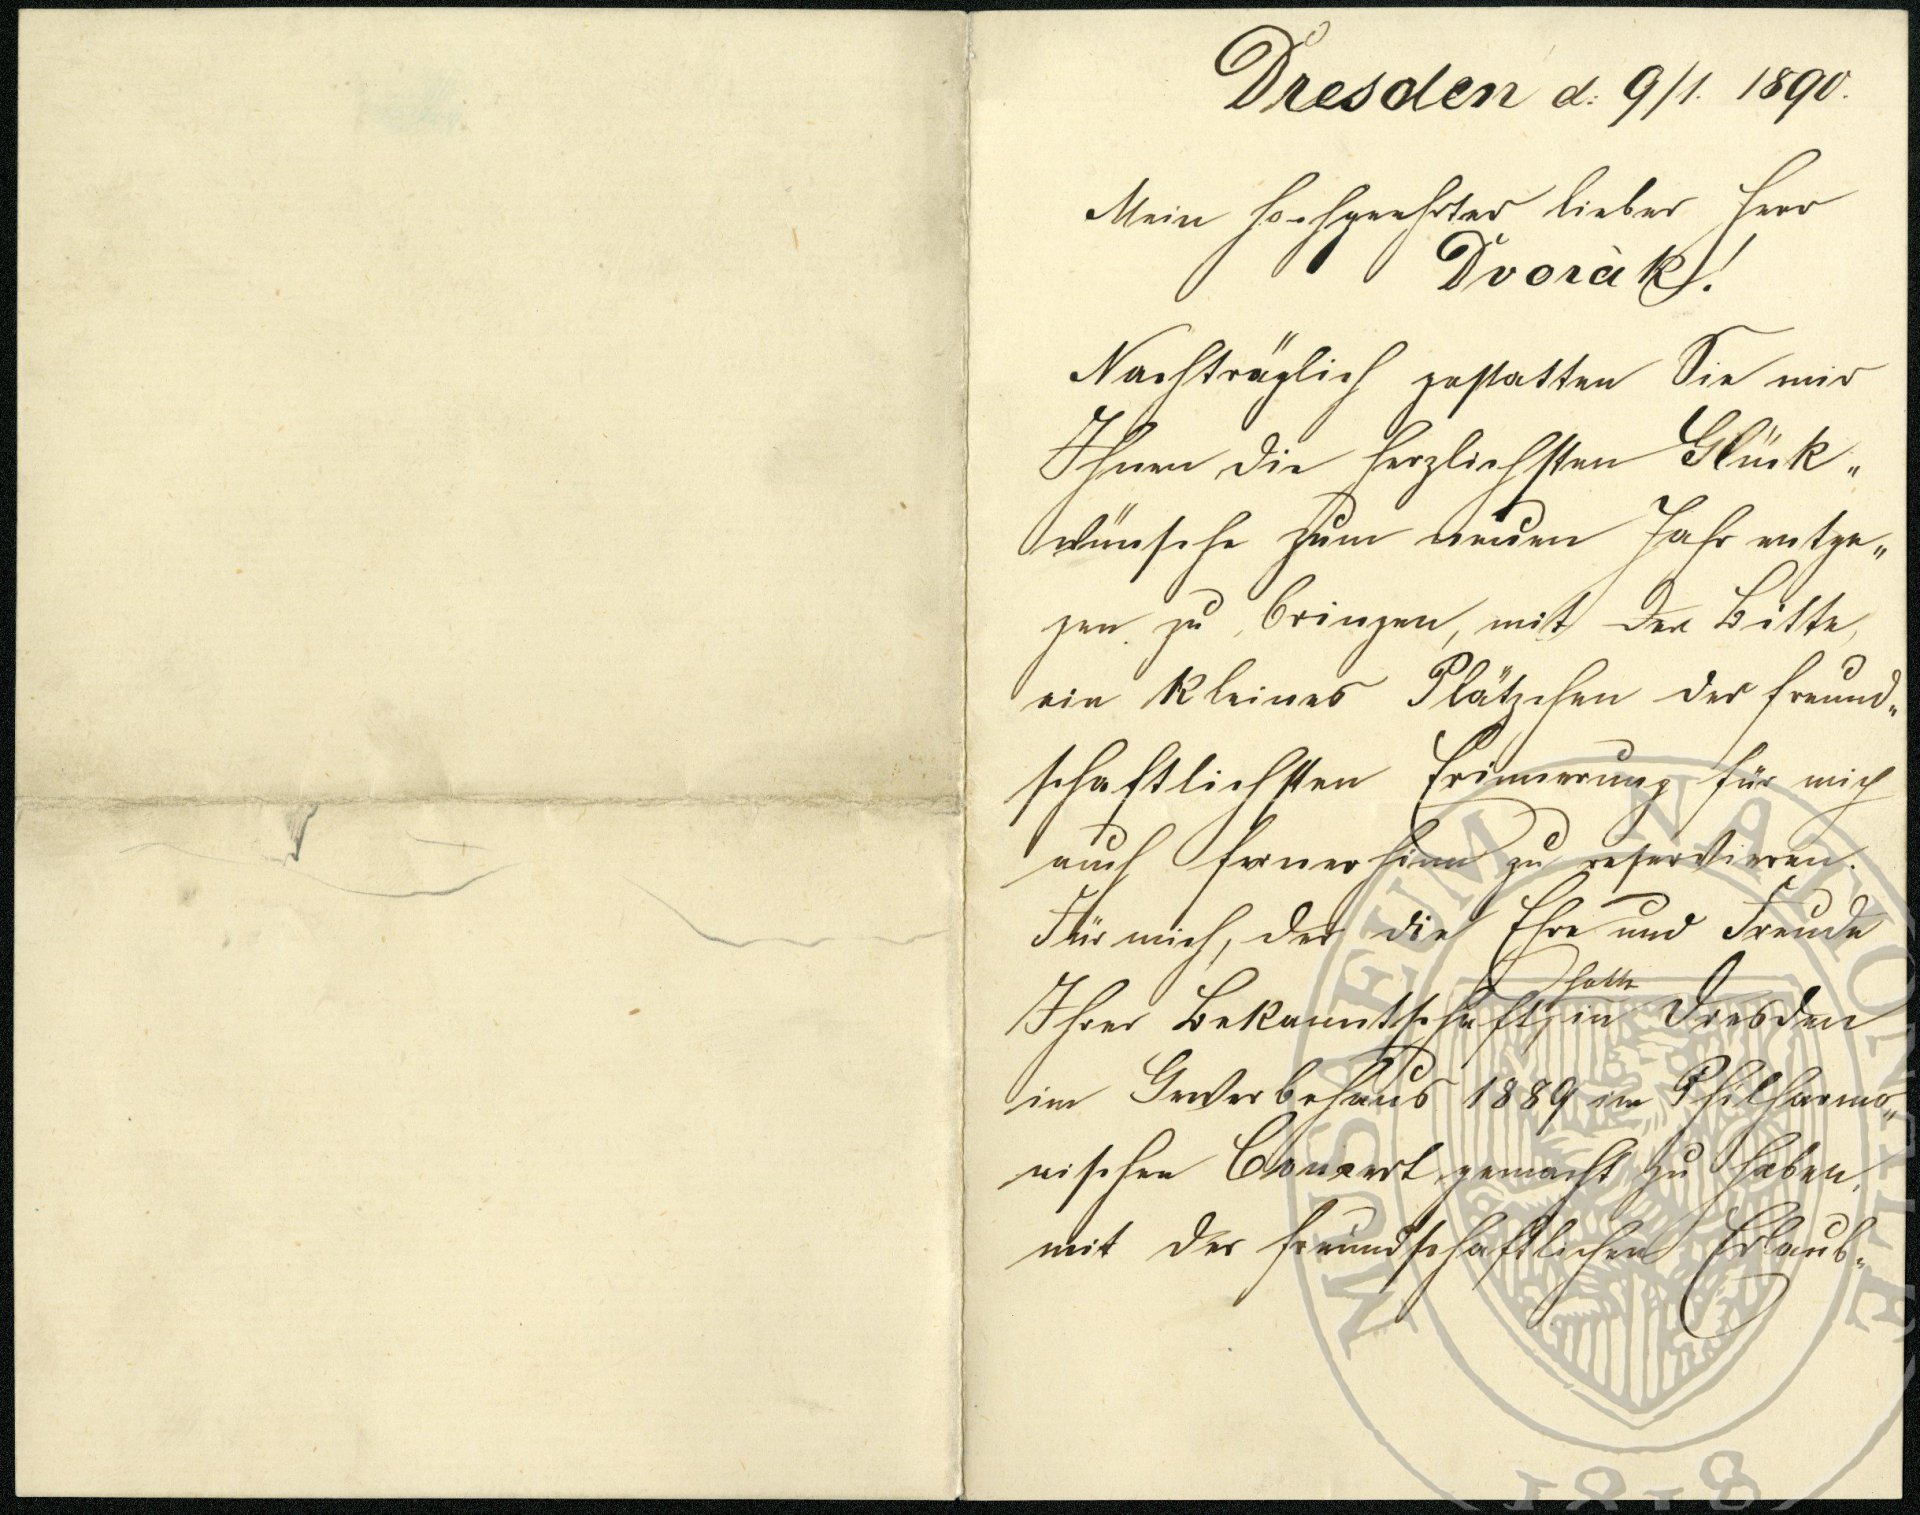 Dresden d. 9/1. 1890.
Mein hochgeehrter lieber Herr
Dvoràk!
Nachträglich gestatten Sie mir
Ihnen die herzlichsten Glück„
wünsche zum neuen Jahr entge„
gen zu bringen, mit der Bitte,
ein kleines Plätzchen der freund„
schaftlichsten Erinnerung für mich
auch fernerhinn zu reservieren.
Für mich, der die Ehre und Freude
hatte
Ihrer Bekanntschaft, in Dresden
im Gewerbehaus 1889 im Philharmo„
nischen Concert gemacht zu haben,
mit der freundschaftlichen Erlaub„
MUSAEUM NATIONALE
1818